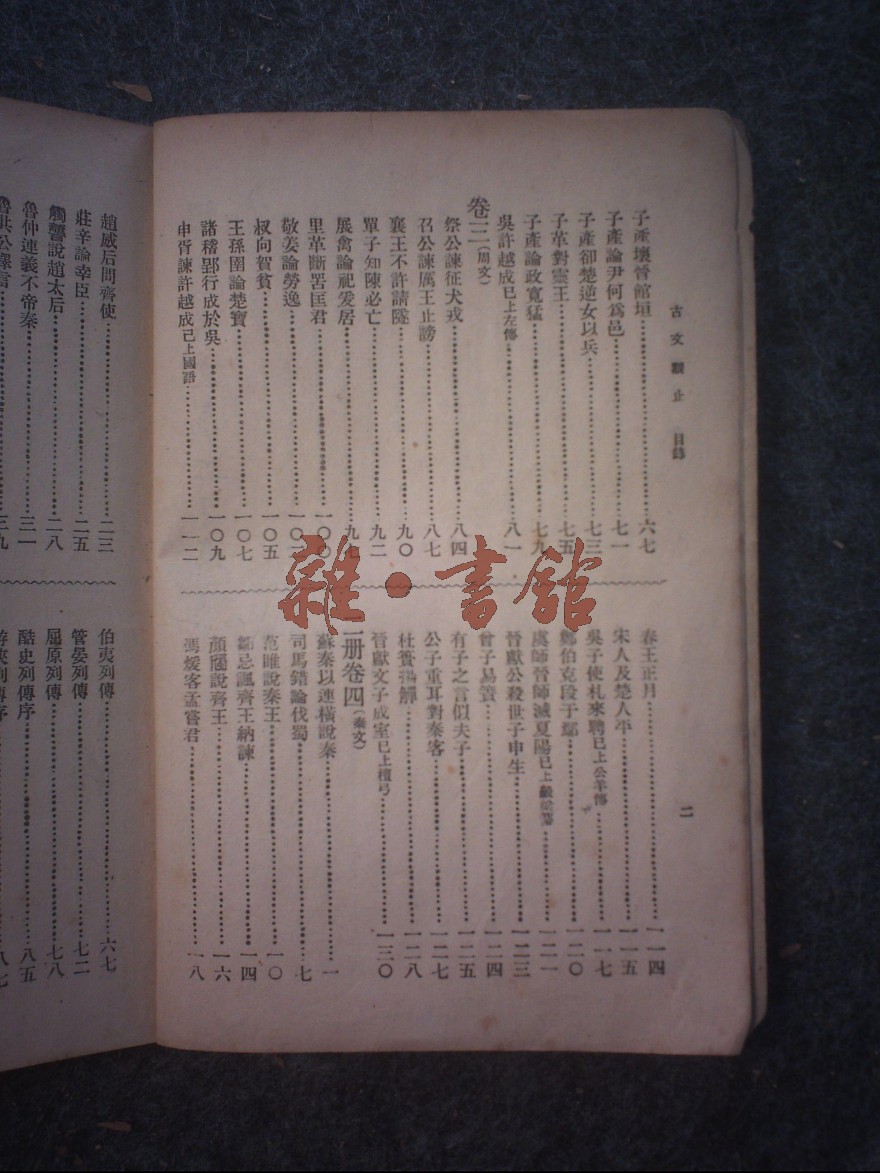 古文觀止 目錄
二
子產壞晉館垣……六七
子產論尹何爲邑……七一
子產卻楚逆女以兵……七三
子革對靈王……七五
子產論政寬猛……七九
吳許越成已上左傳……八一
卷三(周文)
祭公諫征犬戎……八四
召公諫厲王止謗……八七
襄王不許請隧……九〇
單子知陳必亡……九二
展禽論祀爰居……九七
里革斷罟匡君……一〇〇
敬姜論勞逸……一〇
叔向賀貧……一〇五
王孫圉論楚寶……一〇七
諸稽郢行成於吳……一〇九
申胥諫許越成已上國語……一一二
春王正月……一一四
宋人及楚人平……一一五
吳子使札來聘已上公羊傳……一一七
鄭伯克段于鄢……一二〇
虞師晉師滅夏陽已上穀梁傳……一二一
晉獻公殺世子申生……一二三
曾子易簀……一二四
有子之言似夫子……一二五
公子重耳對秦客……一二七
杜蕢揚觶……一二八
晉獻文子成室已上檀弓……一三〇
二册卷四(秦文)
蘇秦以連橫說秦……一
司馬錯論伐蜀……七
范雎說秦王……一〇
鄒忌諷齊王納諫……一四
顏斶說齊王……一六
馮煖客孟嘗君……一八
趙威后問齊使……二三
莊辛論幸臣……二五
觸讋說趙太后……二八
魯仲連義不帝秦……三一
魯共公擇言……三九
伯夷列傳……六七
管晏列傳……七二
屈原列傳……七八
酷吏列傳序……八五
游俠列傳序……八七
雜·書館